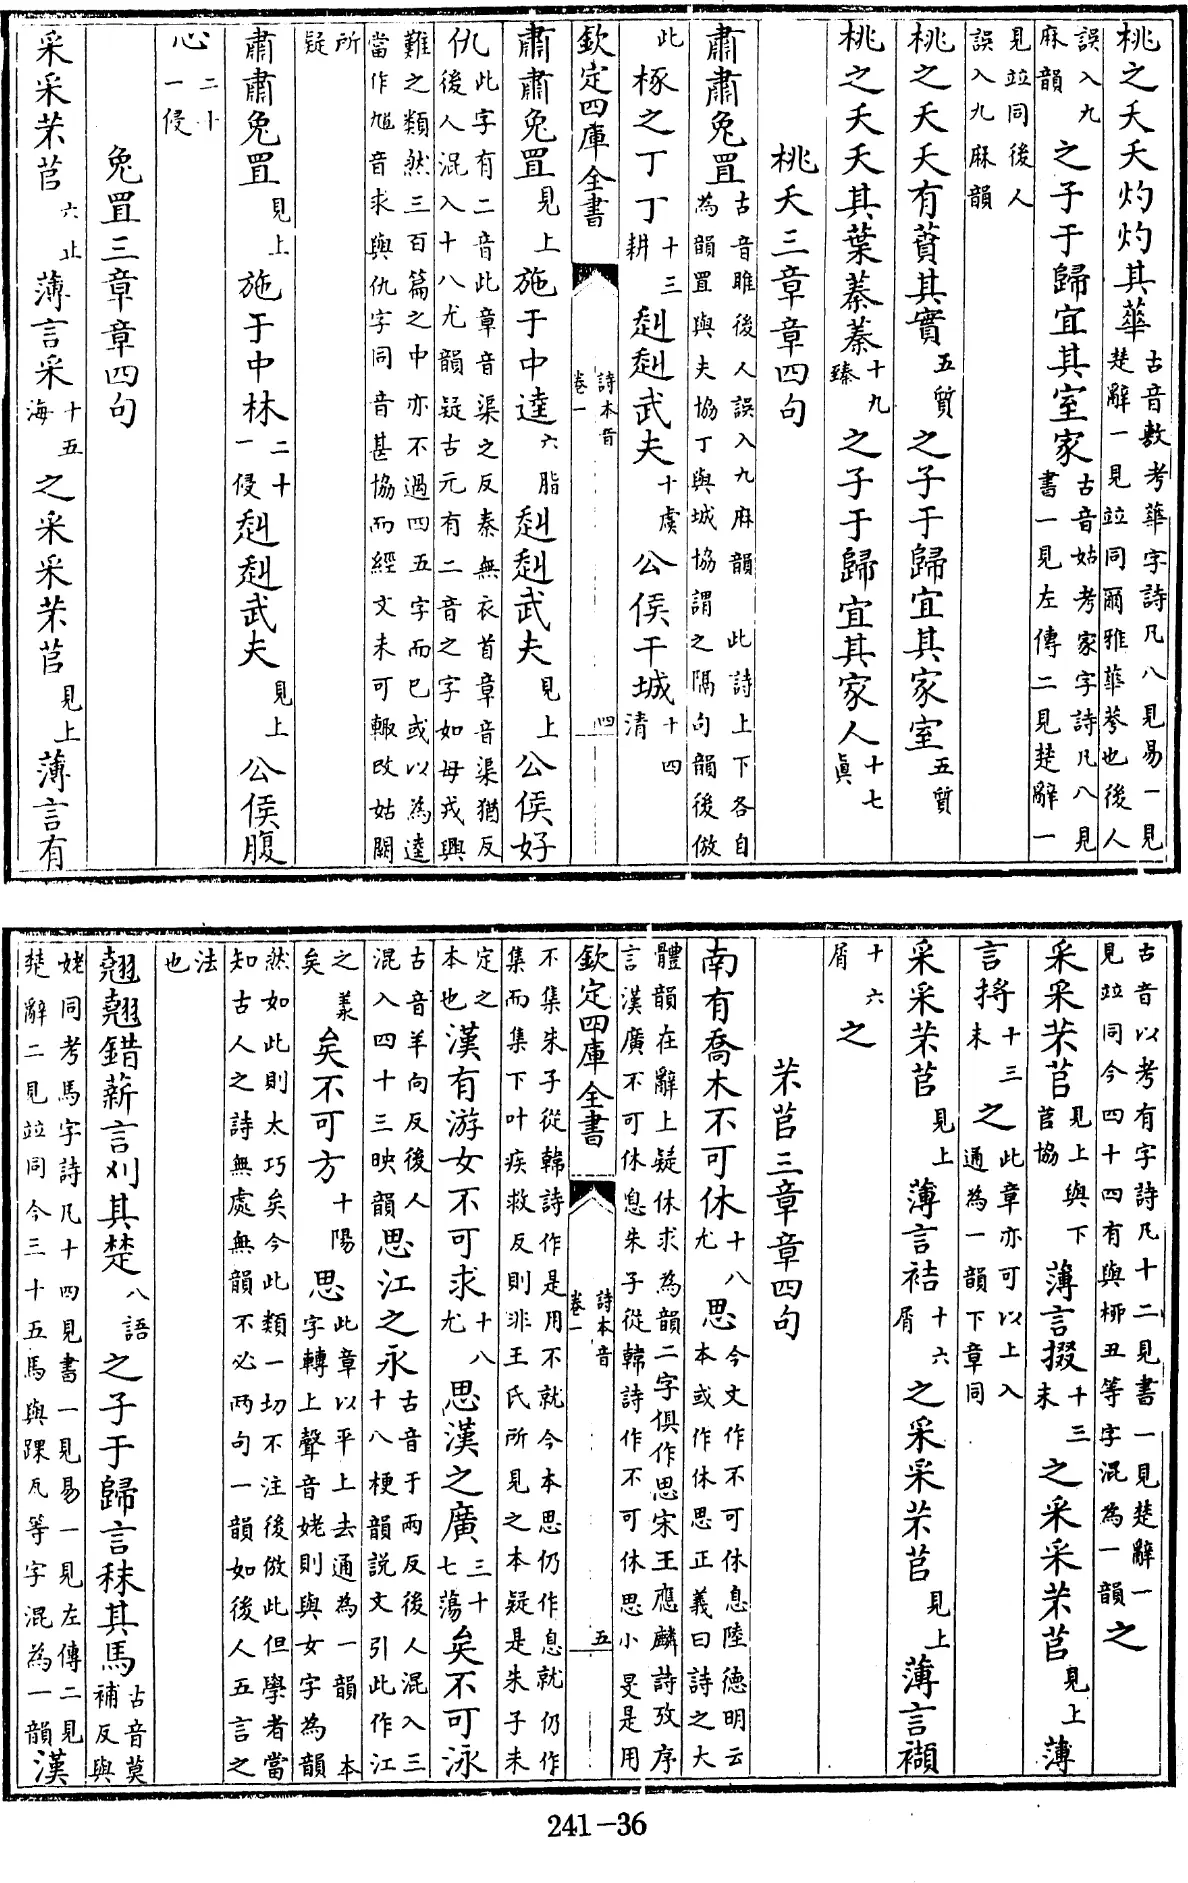 桃之夭夭灼灼其華古音敷考華字詩凡八見易一見楚辭一見並同爾雅華荂也後人
誤入九麻韻之子于歸宜其室家古音姑考家字詩凡八見書一見左傳二見楚辭一
見並同後人誤入九麻韻
桃之夭夭有蕡其實五質之子于歸宜其家室五質
桃之夭夭其葉蓁蓁十九臻之子于歸宜其家人十七真
桃夭三章章四句
肅肅兔罝古音雎後人誤入九麻韻 此詩上下各自為韻罝與夫協丁與城協謂之隔句韻後倣
此椓之丁丁十三耕赳赳武夫十虞公侯干城十四清
欽定四庫全書 詩本音卷一 四
肅肅兔罝見上施于中逵六脂赳赳武夫見上公侯好
仇此字有二音此章音渠之反秦無衣首章音渠猶反後人混入十八尤韻疑古元有二音之字如母戎興
難之類然三百篇之中亦不過四五字而已或以為逵當作馗音求與仇字同音甚協而經文未可輒改姑闕
所疑
肅肅兔罝見上施于中林二十一侵赳赳武夫見上公侯腹
心二十一侵
兔罝三章章四句
采采芣苢六止薄言采十五海之采采芣苢見上薄言有
古音以考有字詩凡十二見書一見楚辭一見並同今四十四有與栁丑等字混為一韻之
采采芣苢見上與下苢協薄言掇十三末之采采芣苢見上薄
言捋十三末之此章亦可以上入通為一韻下章同
采采芣苢見上薄言袺十六屑之采采芣苢見上薄言襭
十六屑之
芣苢三章章四句
南有喬木不可休十八尤思今文作不可休息陸德明云本或作休思正義曰詩之大
體韻在辭上疑休求為韻二字俱作思宋王應麟詩攷序言漢廣不可休息朱子從韓詩作不可休思小旻是用
欽定四庫全書 詩本音卷一 五
不集朱子從韓詩作是用不就今本思仍作息就仍作集而集下叶疾救反則非王氏所見之本疑是朱子未
定之本也漢有游女不可求十八尤思漢之廣三十七蕩矣不可泳
古音羊向反後人混入四十三映韻思江之永古音于兩反後人混入三十八梗韻說文引此作江
之羕矣矣不可方十陽思此章以平上去通為一韻 本字轉上聲音姥則與女字為韻
然如此則太巧矣今此類一切不注後倣此但學者當知古人之詩無處無韻不必兩句一韻如後人五言之
法也
翹翹錯薪言刈其楚八語之子于歸言秣其馬古音莫補反與
姥同考馬字詩凡十四見書一見易一見左傳二見楚辭二見並同今三十五馬與踝瓦等字混為一韻漢
241-36